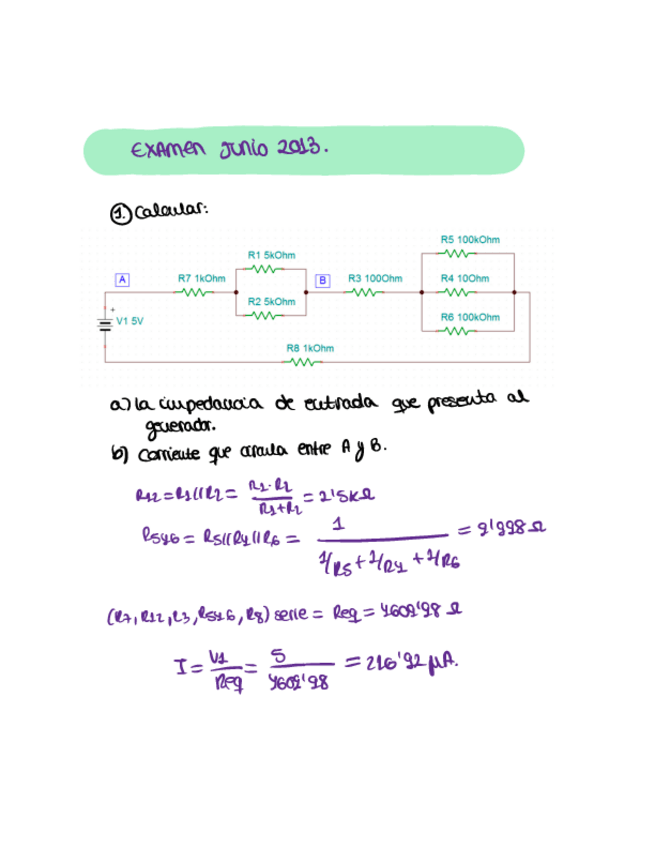 Examen Junio 2013.
1. Calcular:
R5 100kOhm
R1 5kOhm
A R7 1kOhm B R3 100Ohm R4 10Ohm
R2 5kOhm
+ V1 5V
R6 100kOhm
R8 1kOhm
a) la impedancia de entrada que presenta al
generador.
b) Corriente que circula entre A y B.
R12 = R1//R2 = R1·R2 / R1+R2 = 2'5KΩ
R546 = R5//R4//R6 = 1 / 1/R5 + 1/R4 + 1/R6 = 9'998 Ω
(R7, R12, R3, R546, R8) serie = Req = 4609'98 Ω
I = V1 / Req = 5 / 4609'98 = 216'92 μA.